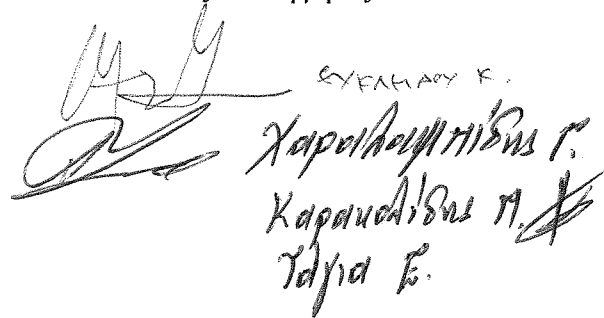 ΕΥΚΛΕΙΔΟΥ Κ.
Χαραλαμπίδης Γ.
Καρακολίδης Π.
Τάγια Ε.